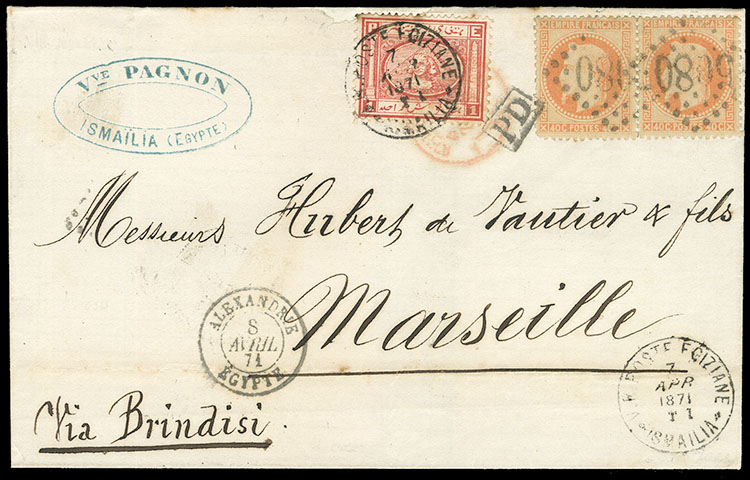 Vve PAGNON
ISMAÏLIA (EGYPTE)
V. R. POSTE EGIZIANE
7
1871
T I
P E
1
PD
EMPIRE FRANÇAIS
40C POSTES 40C
5080
EMPIRE FRANÇAIS
40C POSTES 40C
5080
Messieurs Hubert de Vautier & fils
Marseille
ALEXANDRIE
8
AVRIL
71
EGYPTE
V. R. POSTE EGIZIANE
7
APR
1871
T I
ISMAILIA
Via Brindisi.